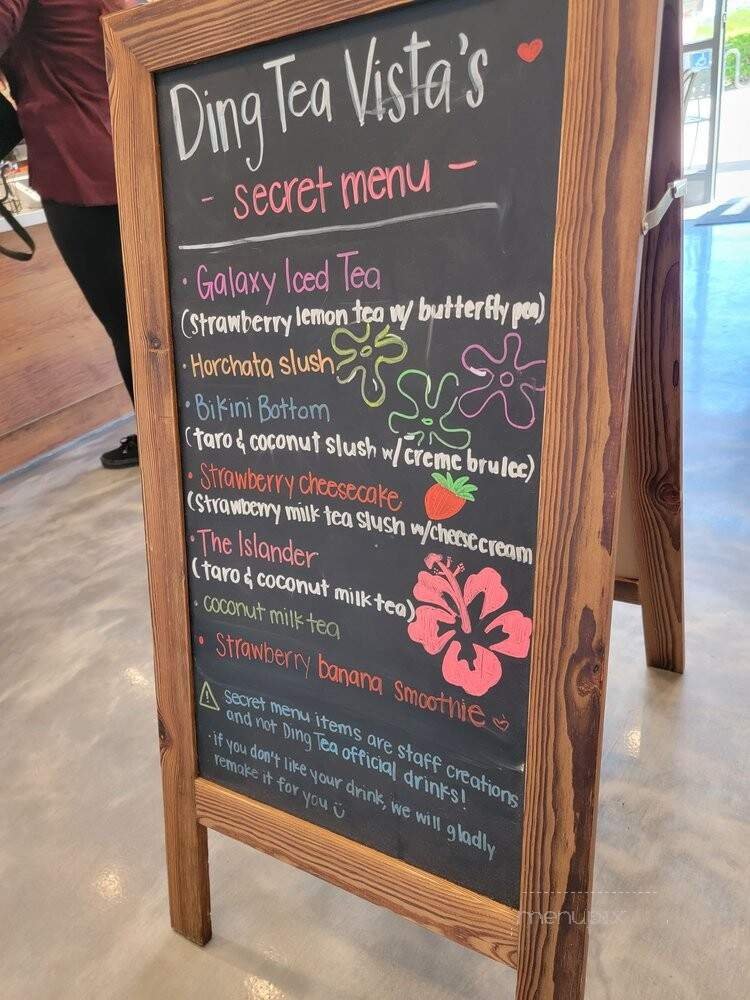 Ding Tea Vista's
- secret menu -
· Galaxy Iced Tea
(strawberry lemon tea w/ butterfly pea)
· Horchata slush
· Bikini Bottom
(taro & coconut slush w/ creme brulee)
· Strawberry cheesecake
(strawberry milk tea slush w/cheesecream
· The Islander
(taro & coconut milk tea)
· coconut milk tea
· Strawberry banana smoothie
secret menu items are staff creations
and not Ding Tea official drinks!
· if you don't like your drink, we will gladly
remake it for you
menupix